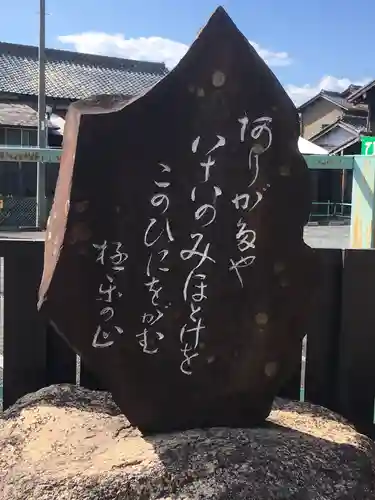 ありがたや
八十八のみほとけを
このひにをがむ
極楽山